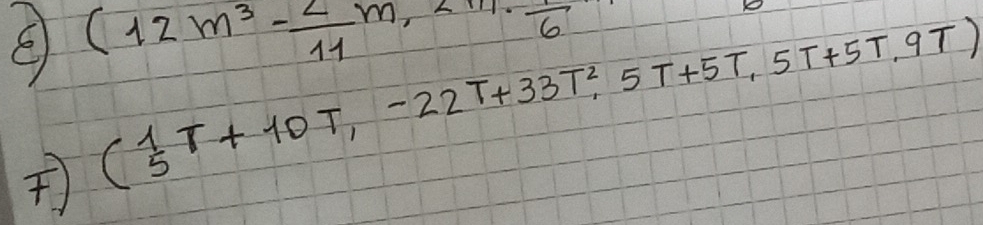 E) (12m³ - 2/11 m, 6
F) (1/5 T + 10T, -22T+33T², 5T+5T, 5T+5T, 9T)